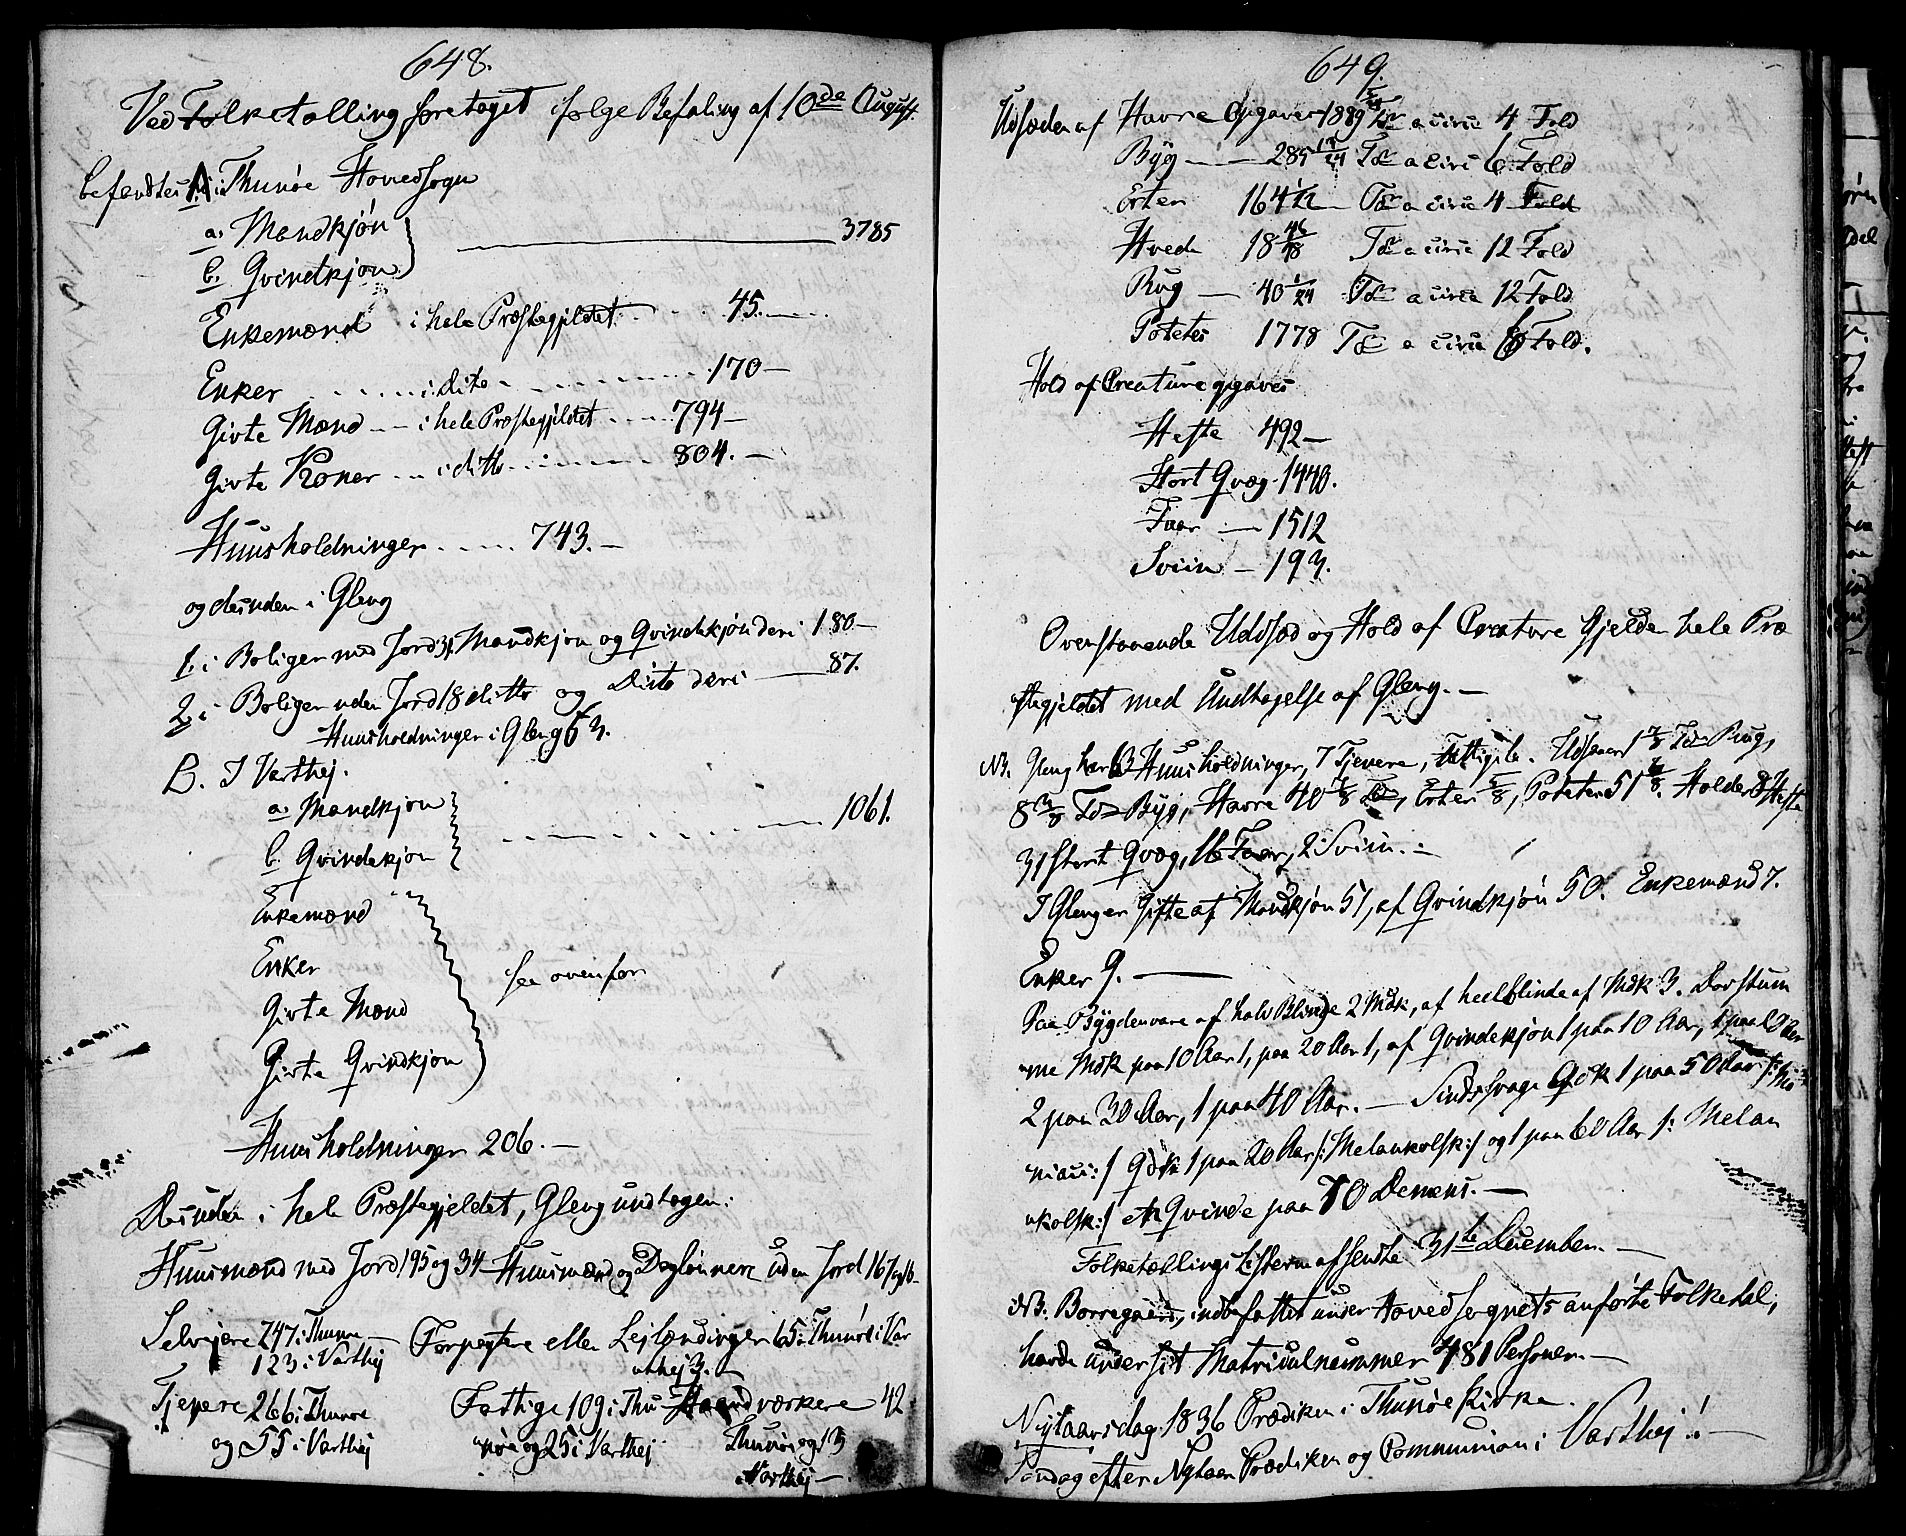 648.
Ved Folketælling foretaget ifølge Befaling af 10de August
befandtes A. i Thunøe Hovedsogn
a. Mandkjøn
3785
b. Qvindkjøn
Enkemænd i hele Præstegjeldet 45.
Enker i Dito 170
Givte Mænd i hele Præstegjeldet 794
Givte Koner i ditto 804.
Huusholdninger 743.
og desuden i Gleng
1. i Boliger med Jord 31. Mandkjøn og Qvindekjøn deri 180
2. i Boliger uden Jord 18 ditto og Dito deri 87.
Huusholdninger i Gleng 63.
B. I Varthej.
a. Mandkjøn
1061.
b. Qvindekjøn
Enkemænd
Enker
see ovenfor
Givte Mænd
Givte Qvindkjøn
Huusholdninger 206.
Desuden i hele Præstegjeldet, Gleng undtagen:
Huusmænd med Jord 195 og 34 Huusmænd og Dagleinere uden Jord 167 og 16
Selvejere 247 i Thunøe Forpagtere eller Lejlændinger 65 i Thunøe i Var
123 i Varthej
athej 3.
Tjenere 266 i Thunøe Fattige 109 i Thu Haandværkere 42
og 55 i Varthej nøe og 25 i Varthej Thunøe og 13
Varthej
649.
Udsæden af Havre Opgaves 1889 Tdr a circa 4 Fold
Byg 285 Tdr a circa 6 Fold
Erter 164 1/12 Tdr a circa 4 Fold
Hvede 18 Tdr a circa 12 Fold
Rug 40 1/24 Tdr a circa 12 Fold
Potetes 1778 Tdr a circa 6 Fold.
Hold af Creature opgaves
Heste 492
Stort Qvæg 1440.
Faar 1512
Sviin 193.
Ovenstaaende Udsæd og Hold af Creature Gjelder hele Præ
stegjeldet med Undtagelse af Gleng.
NB. Gleng har 63 Huusholdninger, 7 Tjenere, Fattige. Udsaaer 1 7/8 Tdr Rug,
8 3/8 Tdr Byg, Havre 40 Tdr, Erter 5/8, Poteter 51. Holder 8 Heste
31 Stort Qvæg, 16 Faar, 2 Sviin.
I Gleng er Gifte af Mandkjøn 51, af Qvindkjøn 50. Enkemænd 7.
Enker 9.
Paa Bygden vare af halv Blinde 2 Mdk, af heelblinde af Mdk 3. Døvstum
me Mdk paa 10 Aar 1, paa 20 Aar 1, af Qvindekjøn 1 paa 10 Aar, 1 paa 20 Aar
2 paa 30 Aar, 1 paa 40 Aar. Sindssvage Qdk 1 paa 50 Aar /: Ma
niaci :/ Qdk 1 paa 20 Aar /: Melankolsk :/ og 1 paa 60 Aar /: Melan
kolsk :/ en Qvinde paa 70 Demens.
Folketællings Listerne afsendte 31te December.
NB. Borregaard, indbefattet under Hovedsognets anførte Folketal,
havde under sit Matriculnummer 181 Personer.
Nytaarsdag 1836 Prædiken i Thunøe Kirke.
Søndag efter Nytaar Prædiken og Communion i Varthej.